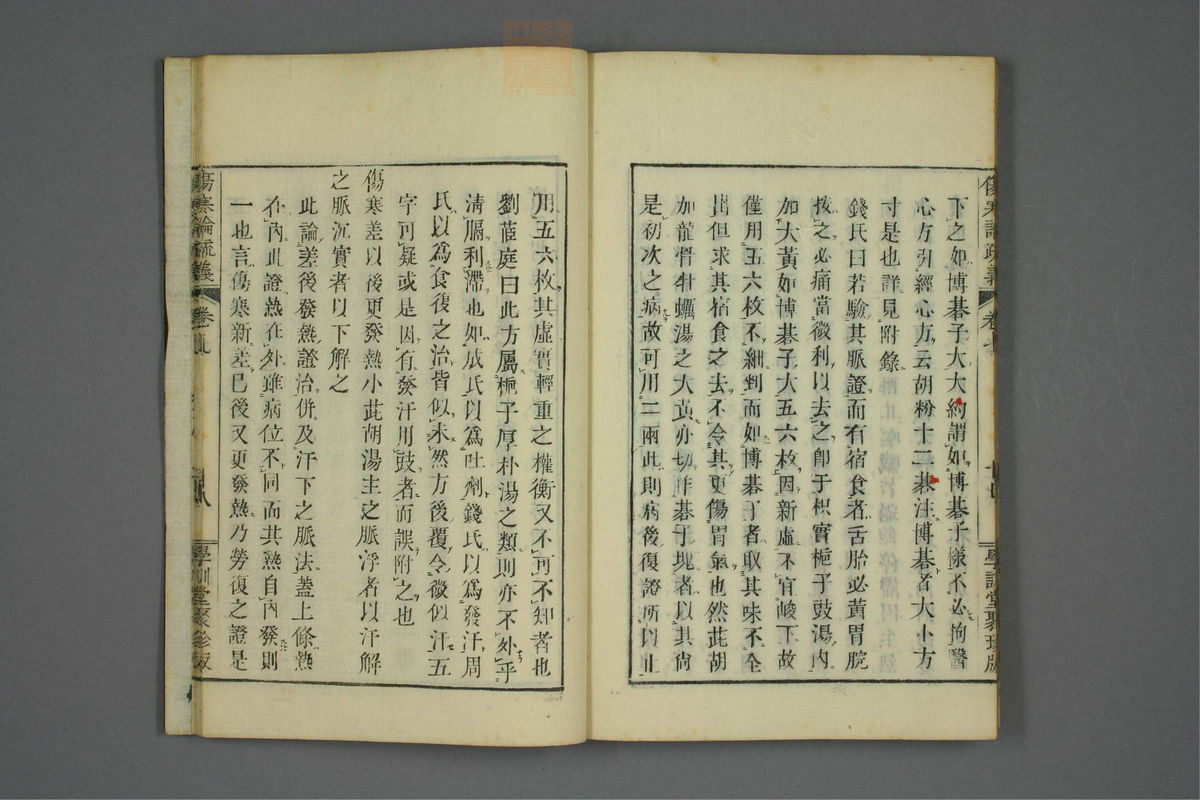 下之如博棊子大大約謂如博棊子樣不必拘醫
心方引經心方云胡粉十二棊注博棊者大小方
寸是也詳見附錄
錢氏曰若驗其脈證而有宿食者舌胎必黄胃脘
按之必痛當微利以去之卽于枳實梔子豉湯内
加大黄如博棊子大五六枚因新虛不宜峻下故
僅用五六枚不細剉而如博棊子者取其味不全
出但求其宿食之去不令其更傷胃氣也然茈胡
加龍骨牡蠣湯之大黄亦切作棊子塊者以其尙
是初次之病故可用二兩此則病後復證所以止
用五六枚其虛實輕重之權衡又不可不知者也
劉茝庭曰此方屬梔子厚朴湯之類則亦不外乎
淸膈利滯也如成氏以爲吐劑錢氏以爲發汗周
氏以爲食復之治皆似未然方後覆令微似汗五
字可疑或是因有發汗用豉者而誤附之也
傷寒差以後更發熱小茈胡湯主之脈浮者以汗解
之脈沉實者以下解之
此論差後發熱證治併及汗下之脈法蓋上條熱
在内此證熱在外雖病位不同而其熱自内發則
一也言傷寒新差已後又更發熱乃勞復之證是
傷寒論疏義
學訓堂聚珍版